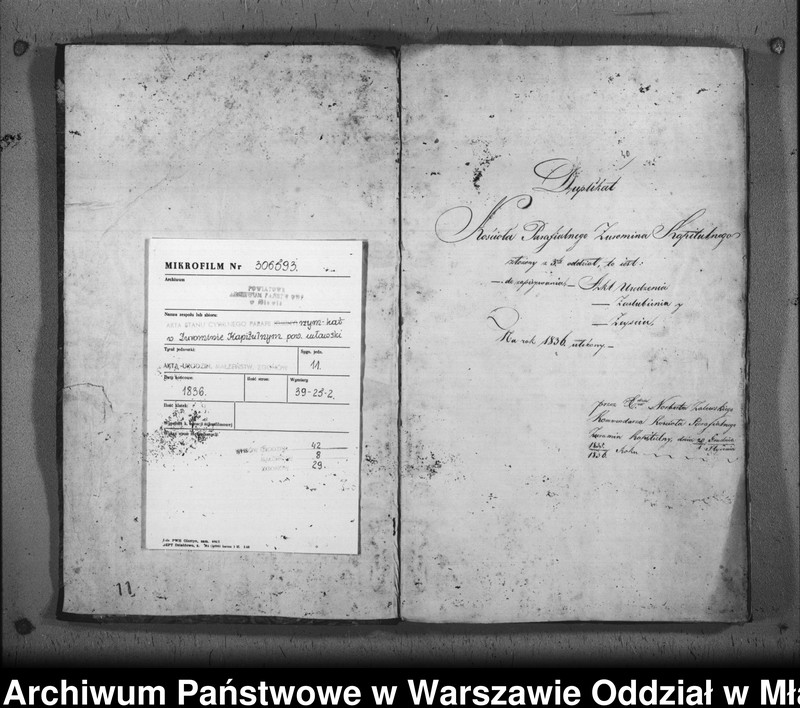 MIKROFILM Nr 306693.
Archiwum
POWIATOWE
ARCHIWUM PAŃSTWOWE
Nazwa zespołu lub zbioru:
AKTA STANU CYWILNEGO PARAFII rzym-kat
w Żurominie Kapitulnym pow. mławski
Tytuł jednostki:
Sygn. jedn.
11.
Daty krańcowe:
1836.
Ilość stron:
Wymiary
39-25-2.
Ilość klatek:
42
8
29.
11
Duplikat
Kościoła Parafialnego Żuromina Kapitulnego
złożony z 3ch oddział, to jest:
— do zapisywania — Akt Urodzenia
— Zaślubienia y
— Zejścia,
Na rok 1836 ułożony —
przez Norberta Zalewskiego
Kościoła Parafialnego
Żuromin Kapitulny, dnia
1835
1836 Roku
Archiwum Państwowe w Warszawie Oddział w Mła